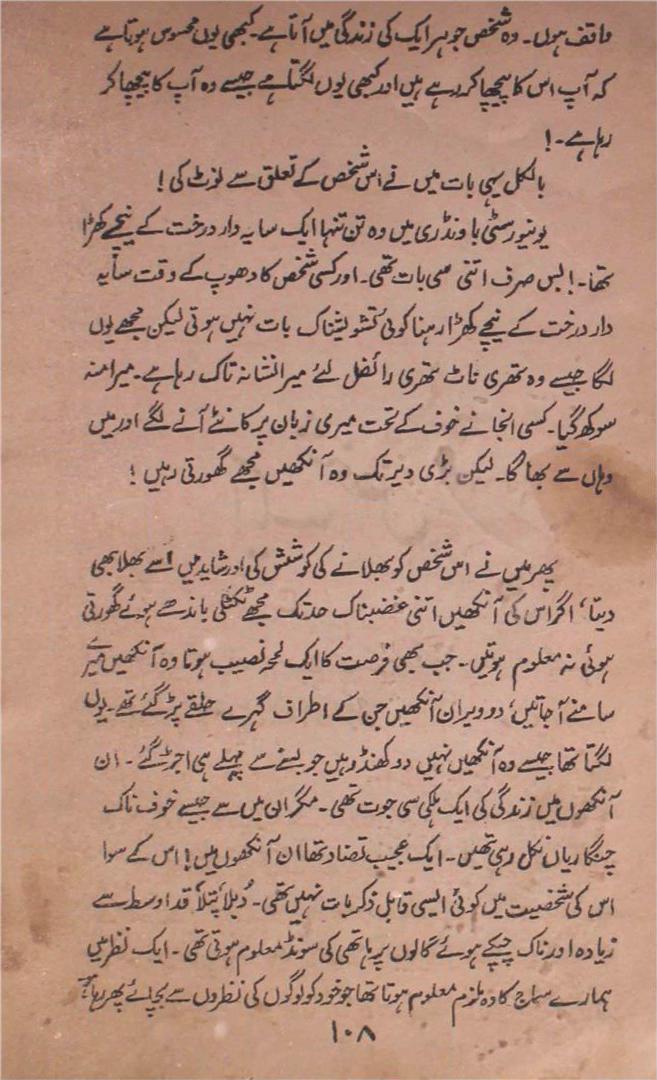 واقف ہوں۔ وہ شخص جو ہر ایک کی زندگی میں آتا ہے۔ کبھی یوں محسوس ہوتا ہے
کہ آپ اس کا پیچھا کر رہے ہیں اور کبھی یوں لگتا ہے جیسے وہ آپ کا پیچھا کر
رہا ہے۔!
بالکل یہی بات میں نے اس شخص کے تعلق سے نوٹ کی!
یونیورسٹی باونڈری میں وہ تن تنہا ایک سایہ دار درخت کے نیچے کھڑا
تھا۔! بس صرف اتنی سی بات تھی۔ اور کسی شخص کا دھوپ کے وقت سایہ
دار درخت کے نیچے کھڑا رہنا کوئی تشویشناک بات نہیں ہوتی لیکن مجھے یوں
لگا جیسے وہ تھری ناٹ تھری رائفل لئے میرا نشانہ تاک رہا ہے۔ میرا منہ
سوکھ گیا۔ کسی انجانے خوف کے تحت میری زبان پر کانٹے آنے لگے اور میں
وہاں سے بھاگا۔ لیکن بڑی دیر تک وہ آنکھیں مجھے گھورتی رہیں!
پھر میں نے اس شخص کو بھلانے کی کوشش کی اور شاید میں اسے بھلا بھی
دیتا، اگر اس کی آنکھیں اتنی غضبناک حد تک مجھے ٹکٹکی باندھے ہوئے گھورتی
ہوئی نہ معلوم ہوتیں۔ جب بھی فرصت کا ایک لمحہ نصیب ہوتا وہ آنکھیں میرے
سامنے آ جاتیں، دو ویران آنکھیں جن کے اطراف گہرے حلقے پڑ گئے تھے۔ یوں
لگتا تھا جیسے وہ آنکھیں نہیں دو کھنڈر ہیں جو بسنے سے پہلے ہی اجڑ گئے۔ ان
آنکھوں میں زندگی کی ایک ہلکی سی جوت تھی۔ مگر ان میں سے جیسے خوف ناک
چنگاریاں نکل رہی تھیں۔ ایک عجیب تضاد تھا ان آنکھوں میں! اس کے سوا
اس کی شخصیت میں کوئی ایسی قابل ذکر بات نہیں تھی۔ دُبلا پتلا قد اوسط سے
زیادہ اور ناک چپکے ہوئے گالوں پر ہاتھی کی سونڈ معلوم ہوتی تھی۔ ایک نظر میں
ہمارے سماج کا وہ ملزم معلوم ہوتا تھا جو خود کو لوگوں کی نظروں سے بچائے پھر رہا ہے
۱۰۸